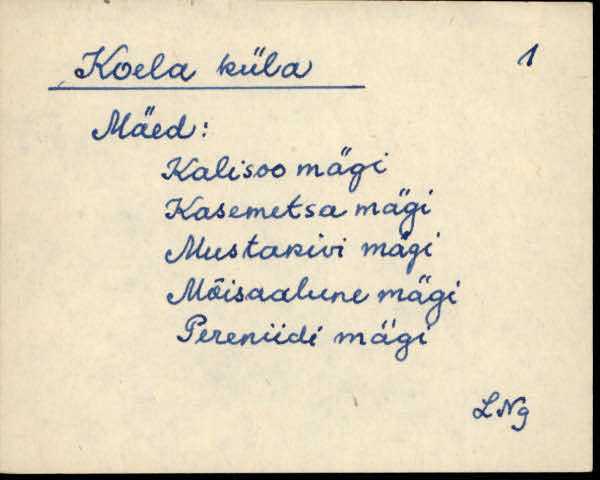 Koela küla 1
Mäed:
Kalisoo mägi
Kasemetsa mägi
Mustakivi mägi
Mõisaalune mägi
Pereniidi mägi
LNg